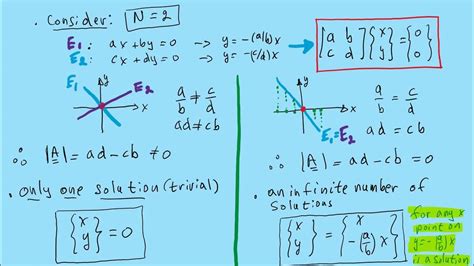 . Consider: N=2
E₁: ax+by=0 → y=-(a/b)x
E₂: cx+dy=0 → y=-(c/d)x
→ [a b; c d]{x; y}={0; 0}
E₁ y x E₂
a/b ≠ c/d
ad≠cb
∴ |A|=ad-cb ≠0
. only one solution(trivial)
{x; y}=0
y x E₁=E₂
a/b = c/d
ad=cb
∴ |A|=ad-cb=0
. an infinite number of
solutions
{x; y}={x; -(a/b)x}
for any x
point on
y=-(a/b)x
is a solution